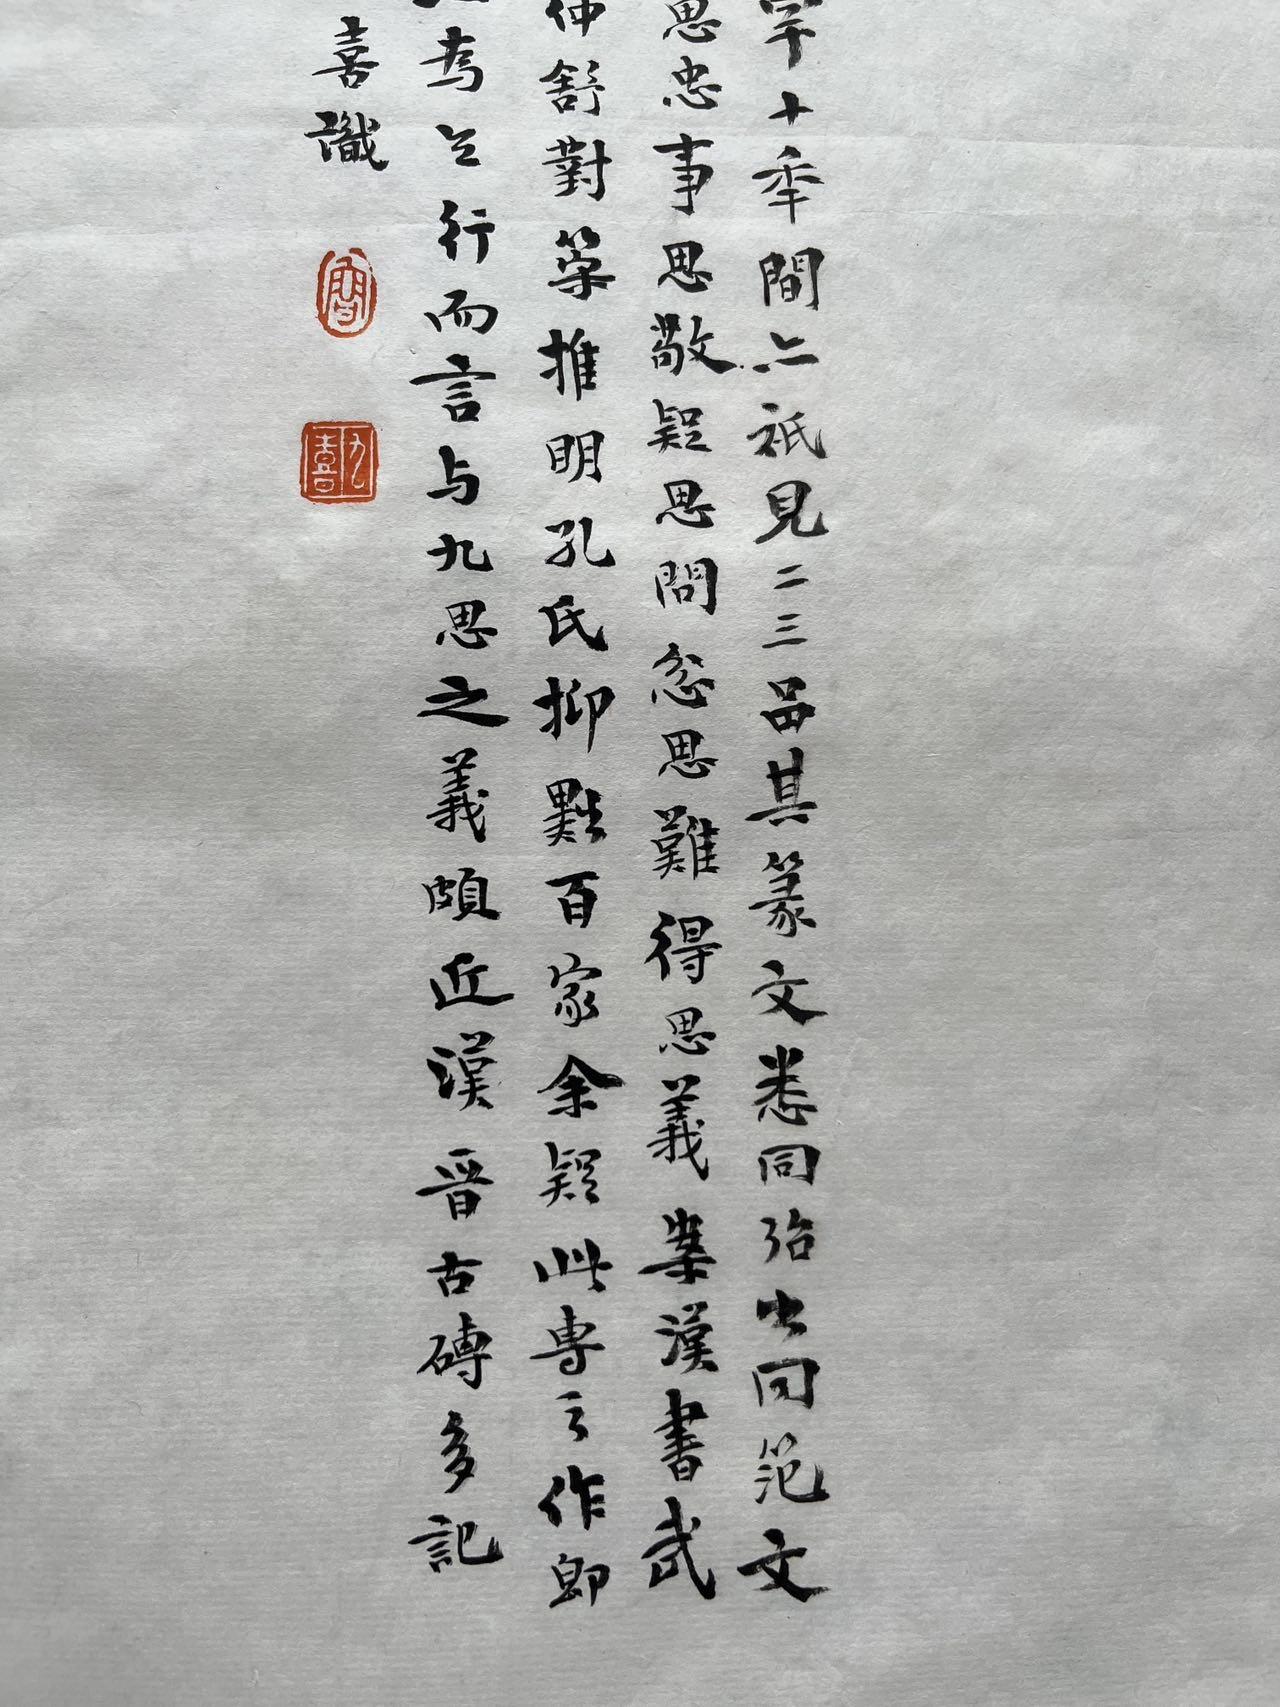 十年間亦祇見二三品其篆文悉同殆出同范文
思忠事思敬疑思問忿思難得思義案漢書武
仲舒對策推明孔氏抑黜百家余疑此專之作即
為公行而言与九思之義頗近漢晉古磚多記
喜識